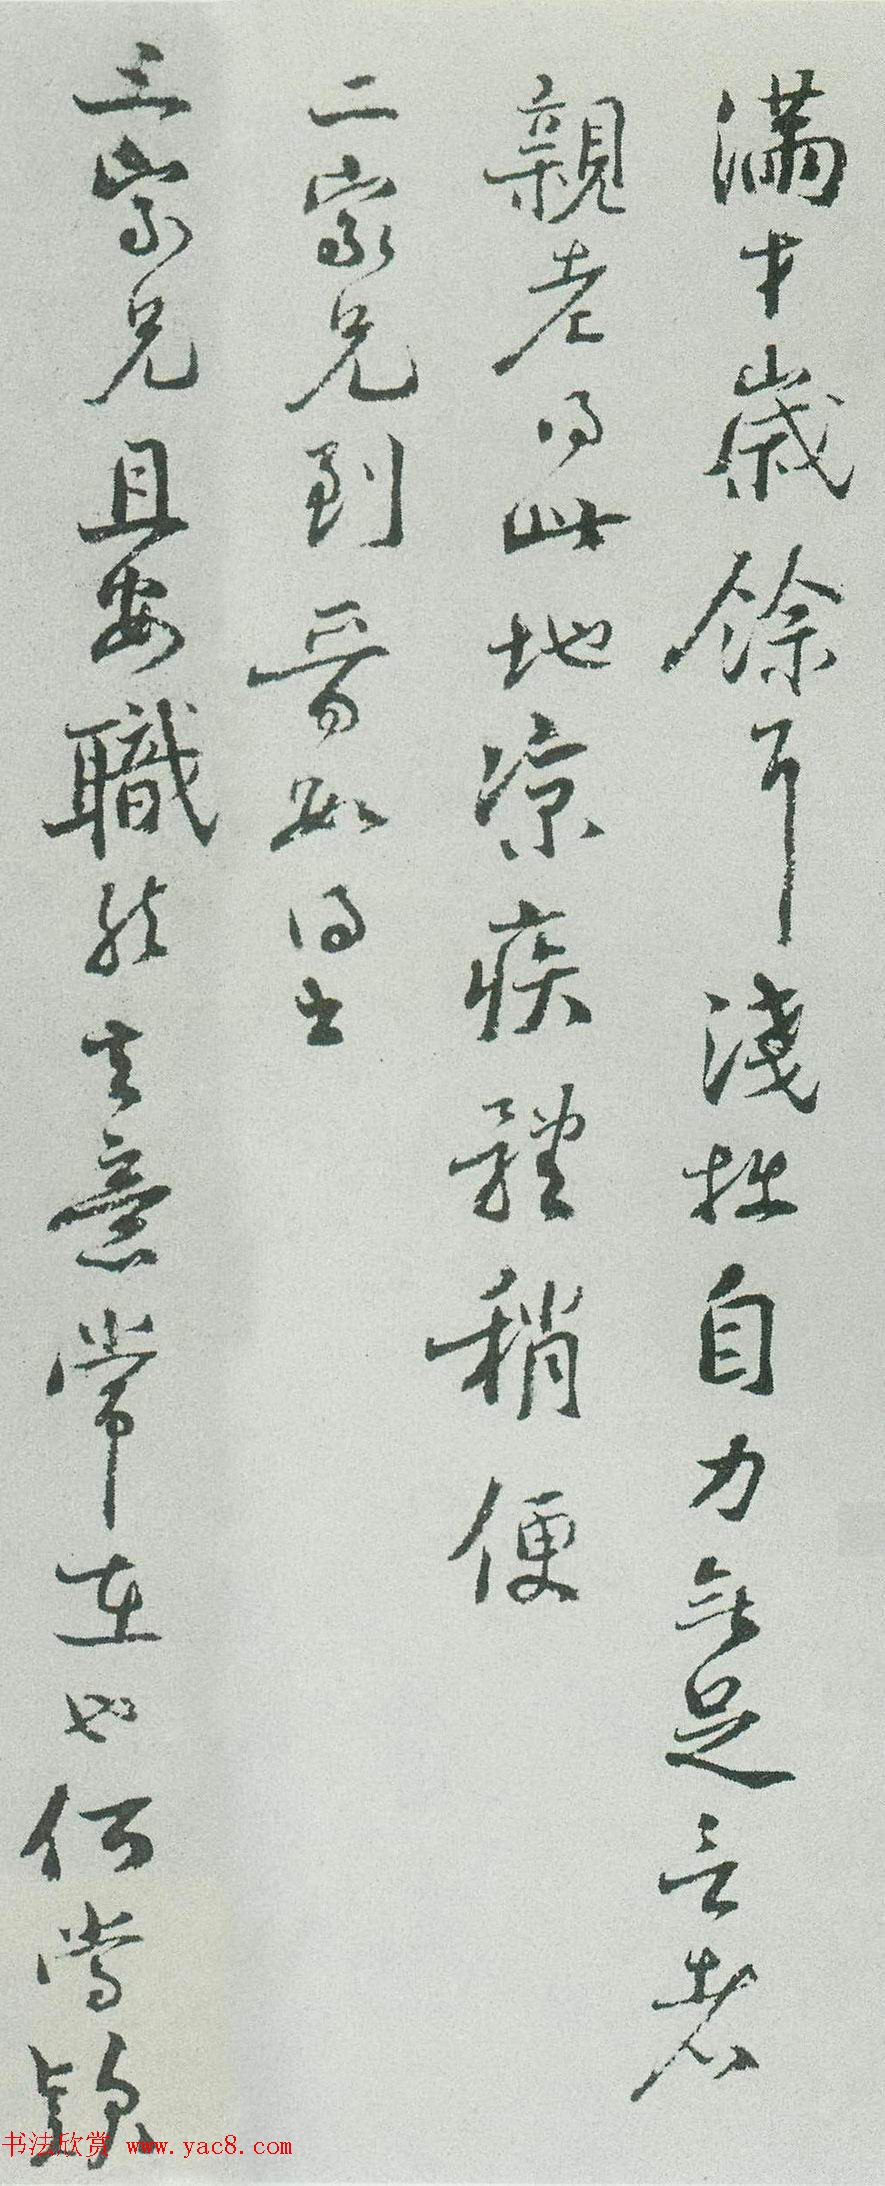 滿才歲餘耳淺拙自力無足言者
親老得此地涼疾體稍便
二家兄到晉如得書
三家兄且安職然玄意常在也何當
书法欣赏 www.yac8.com